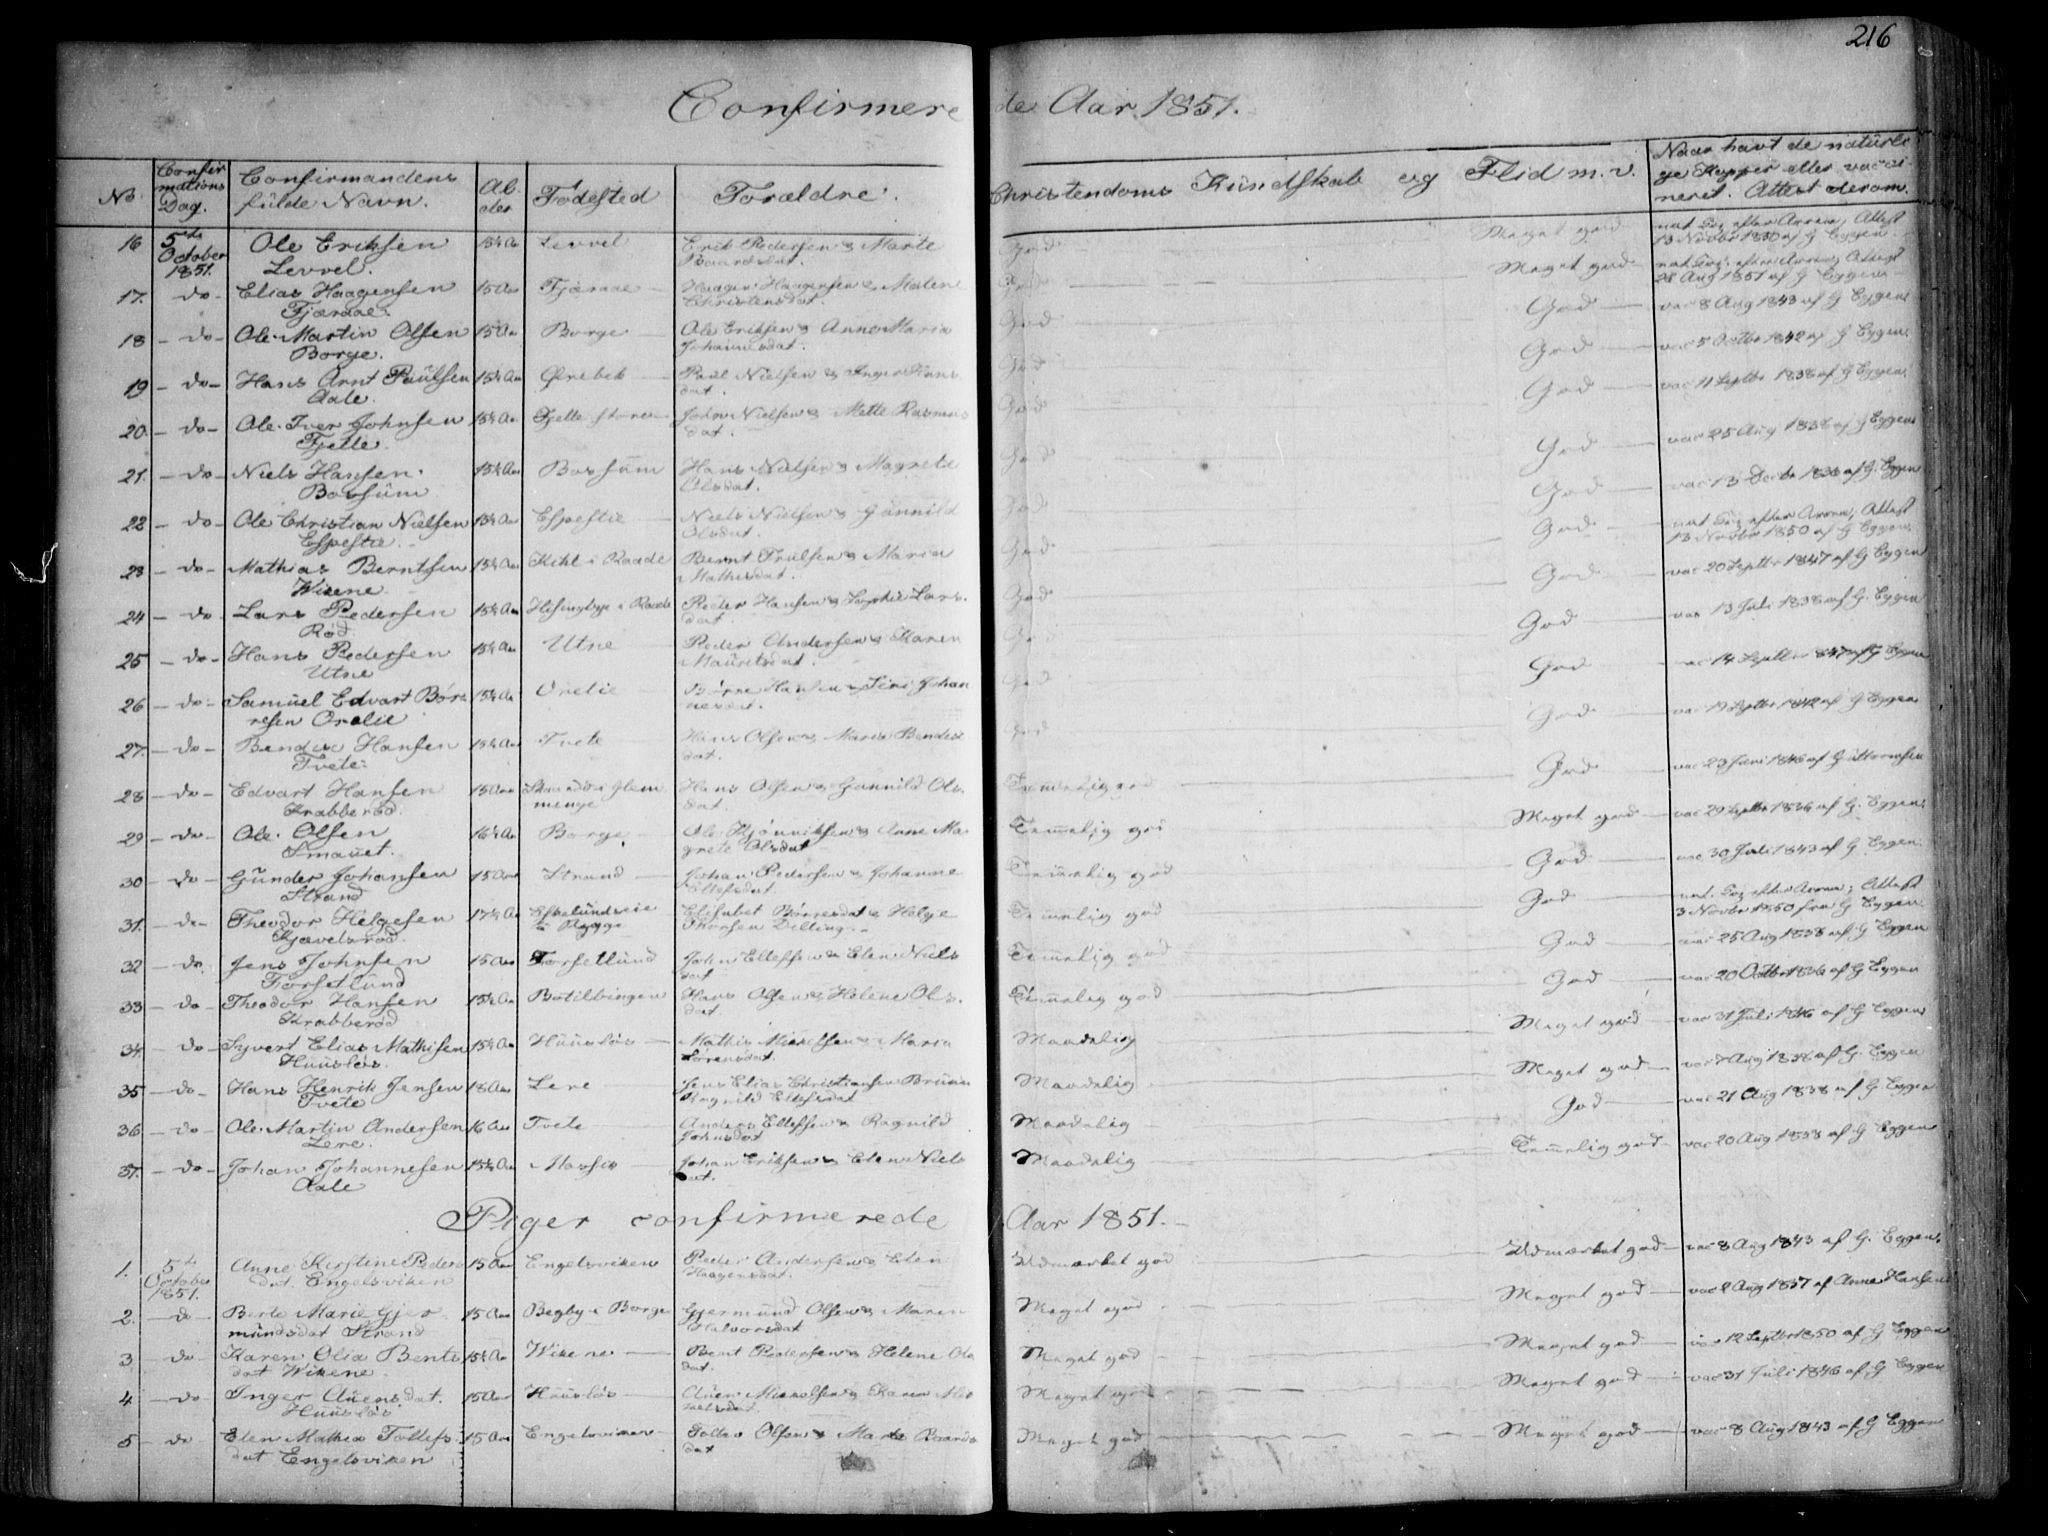 216
Confirmerede Aar 1851.
No. Confirmations Dag. Confirmandens fulde Navn. Alder Födested Forældre. Christendoms Kundskab og Flid m.v. Naar havt de naturlige Kopper eller vaccineret. Attest derom.
16 5te October 1851. Ole Eriksen Levvel. 15½ Aar Levvel Erik Pedersen & Marte Baardsdat. God Meget god nat. efter Attest 13 Novbr 1850 af G Eggen.
17. do Elias Haagensen Fjæraae. 15 Aar Fjæraae Haagen Haagensen & Malene Christensdat. God Meget god nat. efter Attest 28 Aug 1851 af G Eggen
18 do Ole Martin Olsen Borge. 15 Aar Borge Ole Eriksen & Anne Maria Johannesdat. God God vac 8 Aug 1843 af G Eggen
19 do Hans Arnt Paulsen Aale. 15½ Aar Ørebek Paul Nielsen & Inger Hansdat. God God vac 5 Octbr 1842 af G Eggen
20. do Ole Iver Johnsen Fjelle. 15½ Aar Fjelle store John Nielsen & Mette Rasmusdat. God God vac 11 Septbr 1838 af G Eggen.
21. do Niels Hansen Bossum 15½ Aar Bossum Hans Nielsen & Magrete Olsdat. God God vac 25 Aug 1838 af G Eggen
22 do Ole Christian Nielsen Espestie. 15½ Aar Espestie Niels Nielsen & Gunnild Olsdat. God God vac 13 Decbr 1838 af G. Eggen
23 do Mathias Berntsen Wikene. 15½ Aar Kihl i Raade Bernt Trulsen & Maria Mathisdat. God God nat. efter Attest 13 Novbr 1850 af G Eggen.
24 do Lars Pedersen Rød 15½ Aar i Raade Peder Hansen & Sophie Larsdat. God God vac 20 Septbr 1847 af G Eggen
25 do Hans Pedersen Utne 15½ Aar Utne Peder Andersen & Maren Mauritsdat. God God vac 13 Juli 1838 af G. Eggen
26 do Samuel Edvart Børresen Orelie 15½ Aar Orelie Børre Hansen & Siri Johannesdat. God God vac 14 Septbr 1847 af G Eggen
27. do Bendix Hansen Tvete 15½ Aar Tvete Hans Olsen & Maria Bendixdat. God God vac 19 Septbr 1842 af G Eggen
28 do Edvart Hansen Krabberød. 15 Aar i Glemmenge Hans Olsen & Gunnild Olsdat. Temmelig god God vac 29 Juni 1846 af Guttormsen
29 do Ole Olsen Smauet. 16½ Aar Borge. Ole & Anne Magrete Olsdat Temmelig god Meget god vac 29 Septbr 1836 af G. Eggen
30 do Gunder Johansen Strand 15 Aar Strand Johan Pedersen & Johanne Ellefsdat Temmelig god God vac 30 Juli 1843 af G Eggen
31. do Theodor Helgesen Kjævelsrød. 17½ Aar Eskelundseie i Rygge Elisabet Børresdat & Helge Thorsen Dilling. Temmelig god God nat. efter Attest 3 Novbr 1850 fra G Eggen
32 do Jens Johnsen Torsetlund 15 Aar Torsetlund John Ellefsen & Elen Nielsdat Temmelig god God vac 25 Aug 1838 af G Eggen
33 do Theodor Hansen Krabberød 15½ Aar Botilbingen Hans Olsen & Helene Olsdat. Temmelig god God vac 20 Octbr 1836 af G Eggen
34. do Syvert Elias Mathisen Huusløs. 15½ Aar Huusløs Mathis Mikelssen & Maria Sørensdat. Maadelig Meget god vac 31 Juli 1846 af G Eggen
35 do Hans Henrik Jensen Tvete 18 Aar Lere Jens Elias Christiansen Bruun Ragnild Ellefsdat Maadelig Meget god vac 7 Aug 1838 af G. Eggen
36 do Ole Martin Andersen Lere. 16 Aar Tvete Anders Ellefsen & Ragnild Johnsdat Maadelig God vac 21 Aug 1838 af G Eggen
37. do Johan Johannesen Aale 15½ Aar Johan Eriksen & Elen Nielsdat. Maadelig Temmelig god vac 20 Aug 1838 af G Eggen
Piger confirmerede Aar 1851.
1. 5te October 1851. Anne Kirstine Pedersdat. Engelsviken 15 Aar Engelsviken Peder Andersen & Elen Haagensdat. Udmærket god Udmærket god vac 8 Aug 1843 af G. Eggen.
2. do Berte Marie Gjermundsdat Strand 15 Aar Begby i Borge Gjermund Olsen & Maren Halvorsdat Meget god Meget god vac 2 Aug 1837 af Anne Hansen
3 do Karen Olia Bentsdat Wikene. 15½ Aar Wikene Bent Pedersen & Helene Olsdat. Meget god Meget god vac 12 Septbr 1850 af G Eggen
4 do Inger Auensdat. Huusløs. 15 Aar Huusløs Auen Mikelsen & Karen Meget god Meget god vac 31 Juli 1846 af G Eggen
5 do Elen Mathea Tollefsdat Engelsviken 15 Aar Engelsviken Tollev Olsen & Marte Baardsdat Meget god Meget god vac 8 Aug 1843 af G Eggen